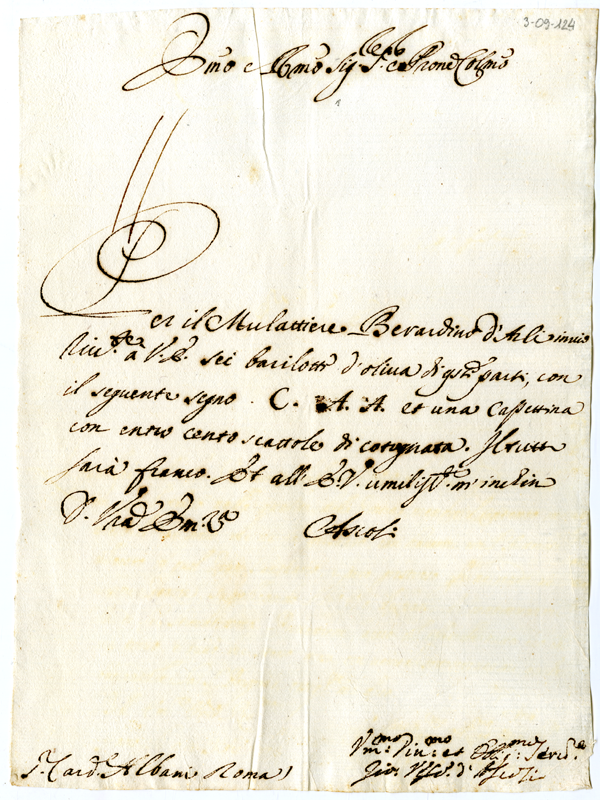 3-09-124
Emo e Rmo Sig.r Sig.r e Prone Colmo
Per il Mulattiere Berardino d'Asli invio
riu.te à V.E. sei barilotti d'oliva di qsti parti, con
il seguente segno . C. A. A. et una Cassettina
con entro cento scattole di cotognata. Il tutto
sarà franco. Et all' E.V. umiliss.te m'inchin
D. V.ra Em.za Ascoli
S.r Card. Albani Roma
Um.mo Div.mo et Obl.mo Serv.re
Gio: Vesc.o d'Ascoli